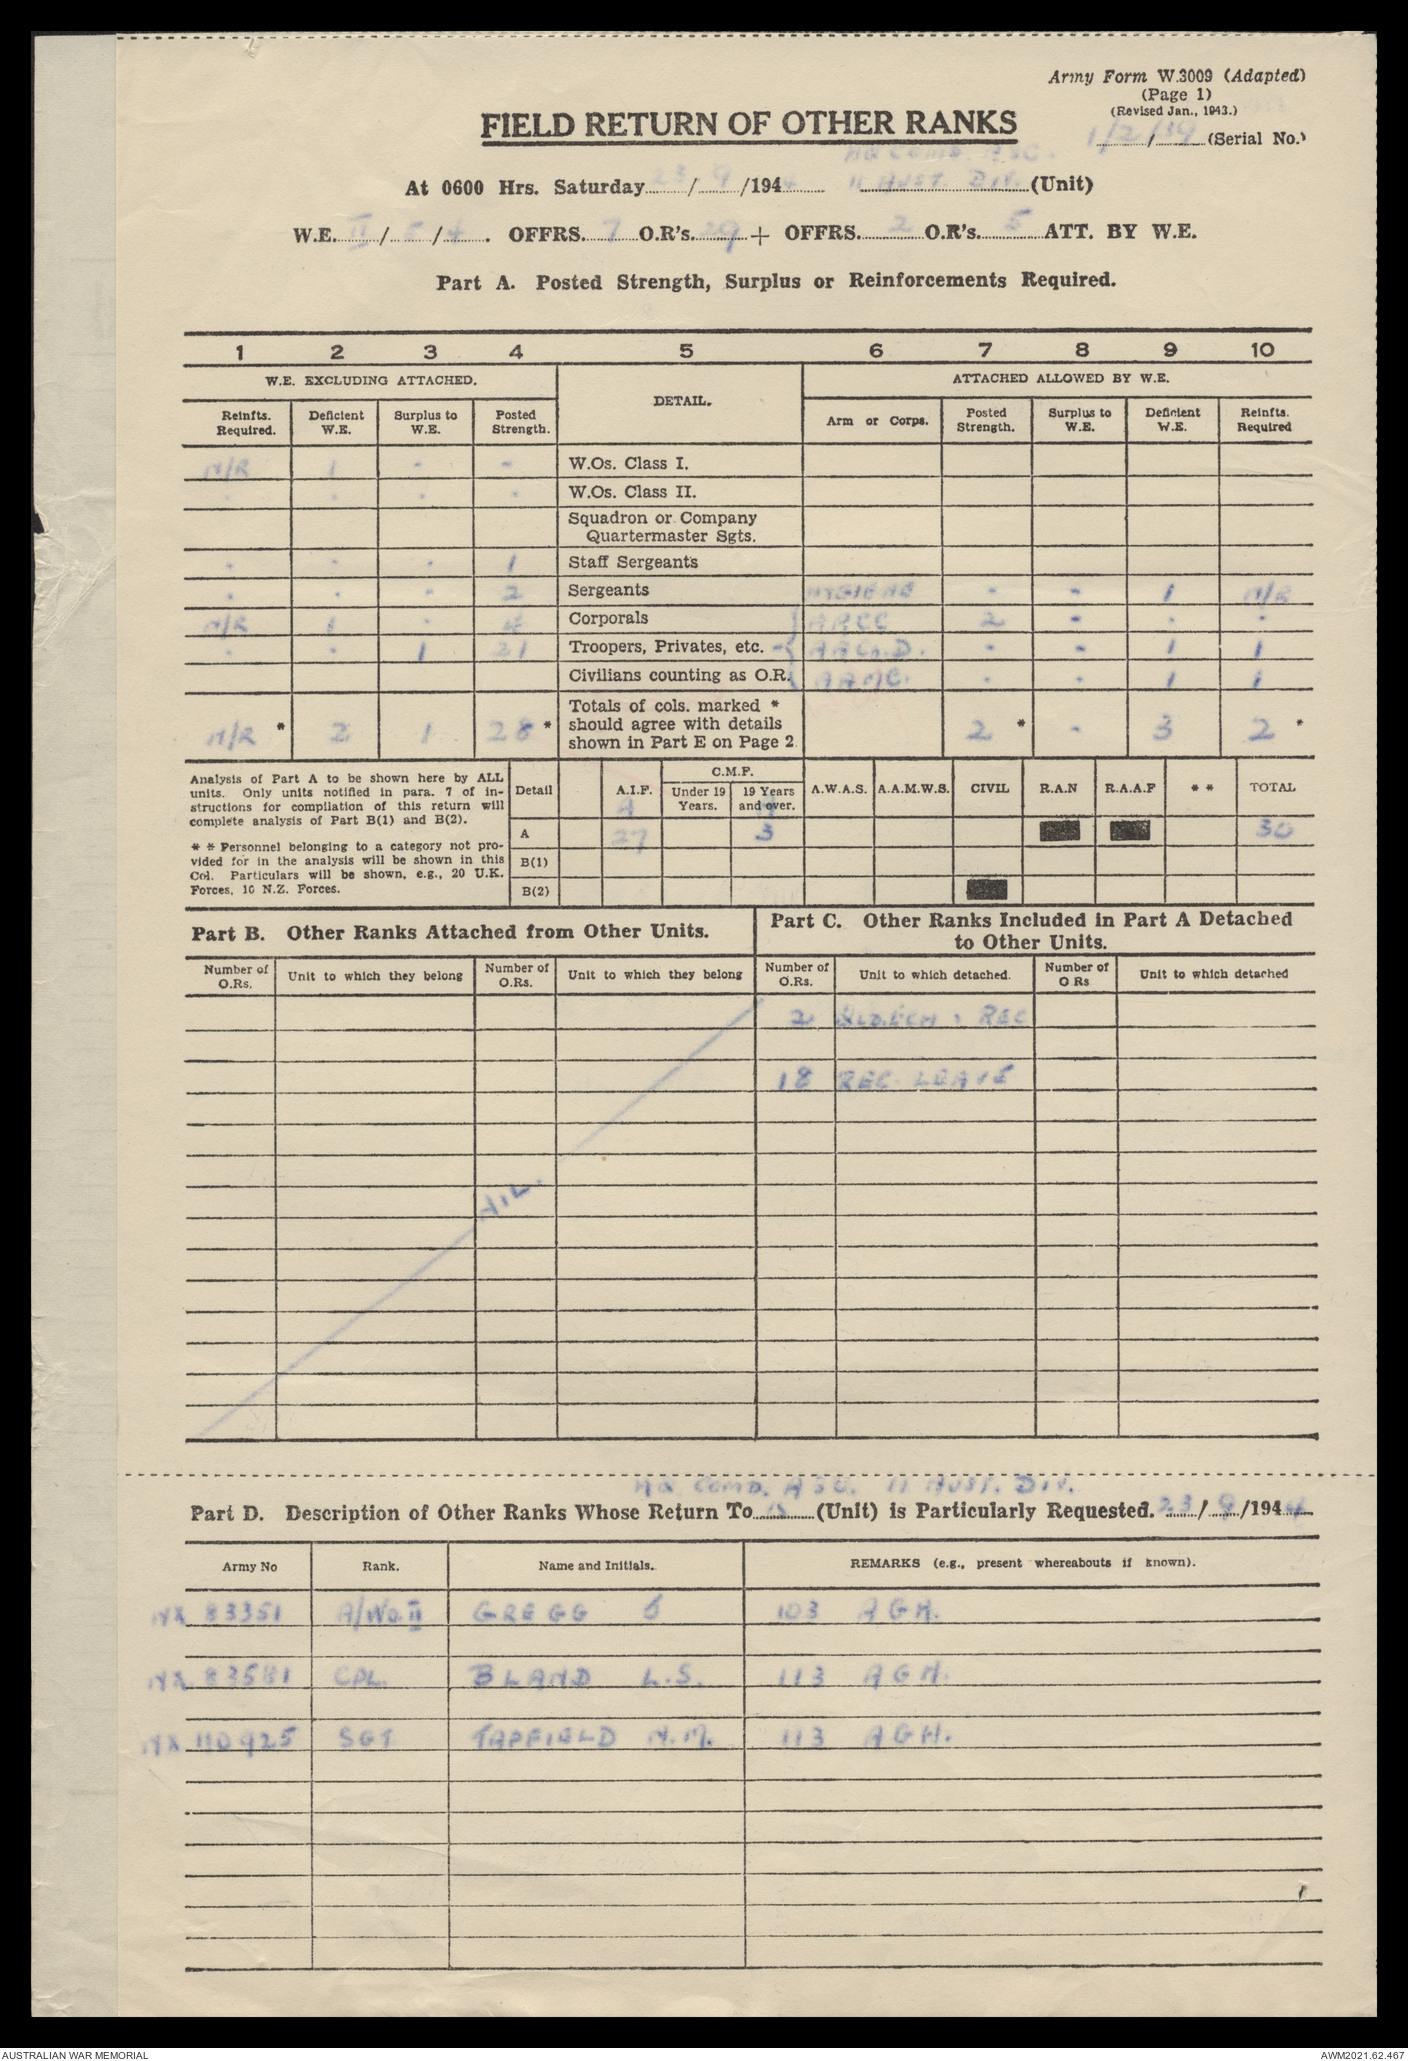 Army Form W.3009 (Adapted)
(Page 1)
(Revised Jan., 1943.)
FIELD RETURN OF OTHER RANKS
1/2/39 (Serial No.)
HQ COMD. ASC.
At 0600 Hrs. Saturday 23/9/1944 11 AUST. DIV. (Unit)
W.E. II/5/4. OFFRS. 7 O.R's. 29 + OFFRS. 2 O.R's. 5 ATT. BY W.E.
Part A. Posted Strength, Surplus or Reinforcements Required.
1 2 3 4 5 6 7 8 9 10
W.E. EXCLUDING ATTACHED. DETAIL. ATTACHED ALLOWED BY W.E.
Reinfts. Required. Deficient W.E. Surplus to W.E. Posted Strength. Arm or Corps. Posted Strength. Surplus to W.E. Deficient W.E. Reinfts. Required
N/R 1 - - W.Os. Class I.
. . . . W.Os. Class II.
Squadron or Company
Quartermaster Sgts.
. . . 1 Staff Sergeants
. . . 2 Sergeants HYGIENE - - 1 N/R
N/R 1 . 4 Corporals AACC 2 - . .
. . 1 21 Troopers, Privates, etc. AACn.D. - - 1 1
Civilians counting as O.R. AAMC. . . 1 1
Totals of cols. marked *
should agree with details
shown in Part E on Page 2
N/R * 2 1 28 * 2 * - 3 2 *
Analysis of Part A to be shown here by ALL
units. Only units notified in para. 7 of in-
structions for compilation of this return will
complete analysis of Part B(1) and B(2).
* * Personnel belonging to a category not pro-
vided for in the analysis will be shown in this
Col. Particulars will be shown, e.g., 20 U.K.
Forces, 10 N.Z. Forces.
C.M.F.
Detail A.I.F. Under 19 Years. 19 Years and over. A.W.A.S. A.A.M.W.S. CIVIL R.A.N R.A.A.F * * TOTAL
A 27 3 30
B(1)
B(2)
Part B. Other Ranks Attached from Other Units.
Part C. Other Ranks Included in Part A Detached
to Other Units.
Number of O.Rs. Unit to which they belong Number of O.Rs. Unit to which they belong Number of O.Rs. Unit to which detached. Number of O Rs Unit to which detached
2 REC
18 REC. LEAVE
NIL.
HQ COMD. ASC. 11 AUST. DIV.
Part D. Description of Other Ranks Whose Return To (Unit) is Particularly Requested. 23/9/1944
Army No Rank. Name and Initials. REMARKS (e.g., present whereabouts if known).
NX 83351 A/Wo.II GREGG J 103 AGH.
NX 83581 CPL. BLAND L.S. 113 AGH.
NX 110925 SGT TAPFIELD N.M. 113 AGH.
AUSTRALIAN WAR MEMORIAL
AWM2021.62.467